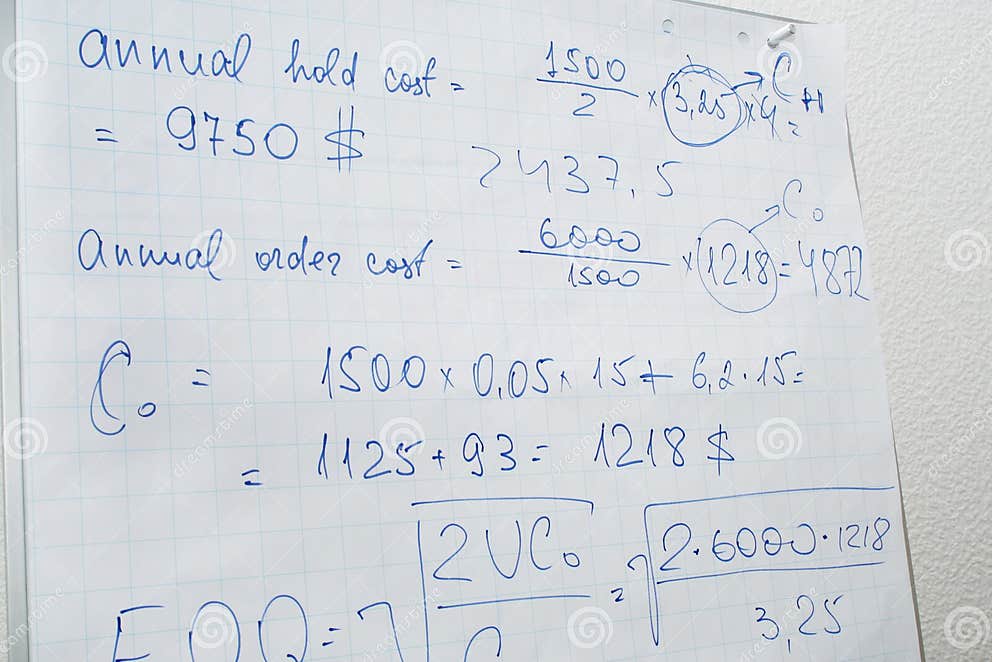 annual hold cost = 1500/2 × 3,25 × 4 = → CH
= 9750 $ 2437,5
annual order cost = 6000/1500 × 1218 = 4872 → Co
Co = 1500 × 0,05 × 15 + 6,2 · 15 =
= 1125 + 93 = 1218 $
EOQ = √2UCo/C = √2·6000·1218/3,25